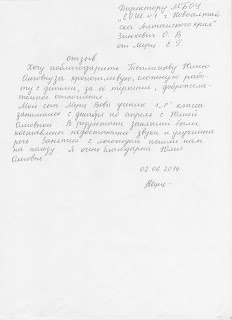 Директору МБОУ
"СОШ №1 г. Новоалтай-
ска Алтайского края"
Зинкевич О. В
от Мерц Е. Г
отзыв
Хочу поблагодарить Тепляшину Юлию
за кропотливую, сложную рабо-
ту с детьми, за её терпение, доброжела-
тельное отношение.
Мой сын Мерц Вова ученик 1 класса
занимался с декабря по апрель с Юлией
В результате занятий были
восполнены недостающие звуки и улучшена
речь Занятия с логопедом пошли нам
на пользу Я очень благодарна Юлии
02.06.2014